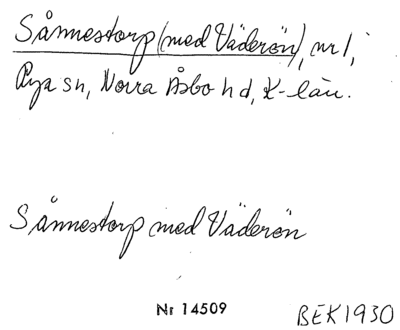 Sånnestorp (med Väderön), nr 1,
Rya sn, Norra Åsbo hd, K-län.
Sånnestorp med Väderön
Nr 14509
BEK1930